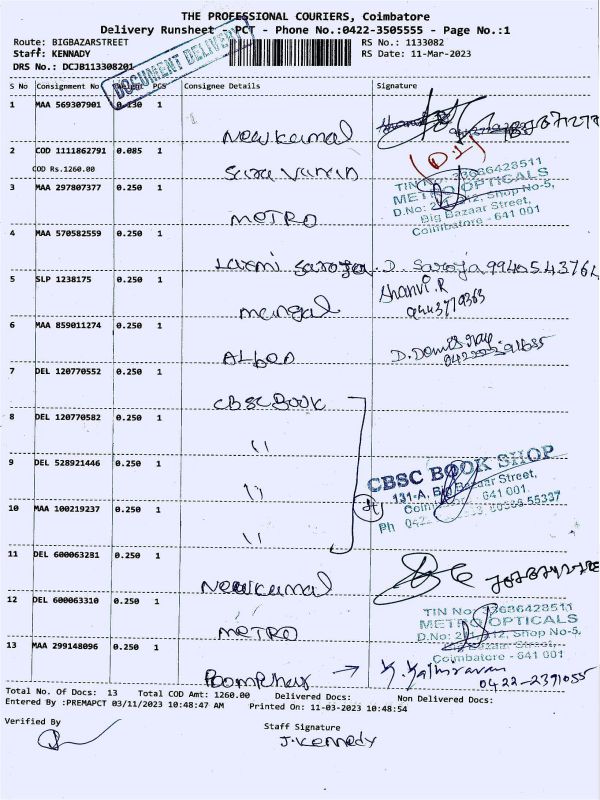 THE PROFESSIONAL COURIERS, Coimbatore
Delivery Runsheet - PCT - Phone No.:0422-3505555 - Page No.:1
Route: BIGBAZARSTREET
RS No.: 1133082
Staff: KENNADY
RS Date: 11-Mar-2023
DRS No.: DCJB113308201
DOCUMENT DELIVERY
S No Consignment No PCS Consignee Details Signature
1 MAA 569307901 0.130 1 New Kamal
2 COD 1111862791 0.085 1
COD Rs.1260.00
(D-1)
3 MAA 297807377 0.250 1 METRO
TIN No: 33686428511
METRO OPTICALS
D.No: 211-212, Shop No-5,
Big Bazaar Street,
Coimbatore - 641 001
4 MAA 570582559 0.250 1 Laxmi Saroja D. Saroja 9940543764
5 SLP 1238175 0.250 1 mangal Shanvi.R
9443779363
6 MAA 859011274 0.250 1
7 DEL 120770552 0.250 1 CBSC Book
8 DEL 120770582 0.250 1 "
9 DEL 528921446 0.250 1 "
CBSC BOOK SHOP
131-A, Big Bazaar Street,
Coimbatore - 641 001.
10 MAA 100219237 0.250 1 "
11 DEL 600063281 0.250 1 New Kamal
12 DEL 600063310 0.250 1 METRO
TIN No: 33686428511
METRO OPTICALS
D.No: 211-212, Shop No-5,
Big Bazaar Street,
Coimbatore - 641 001
13 MAA 299148096 0.250 1 Poompuhar → K. Kathiravan
0422-2391055
Total No. Of Docs: 13 Total COD Amt: 1260.00 Delivered Docs: Non Delivered Docs:
Entered By :PREMAPCT 03/11/2023 10:48:47 AM Printed On: 11-03-2023 10:48:54
Verified By
Staff Signature
J. Kennedy